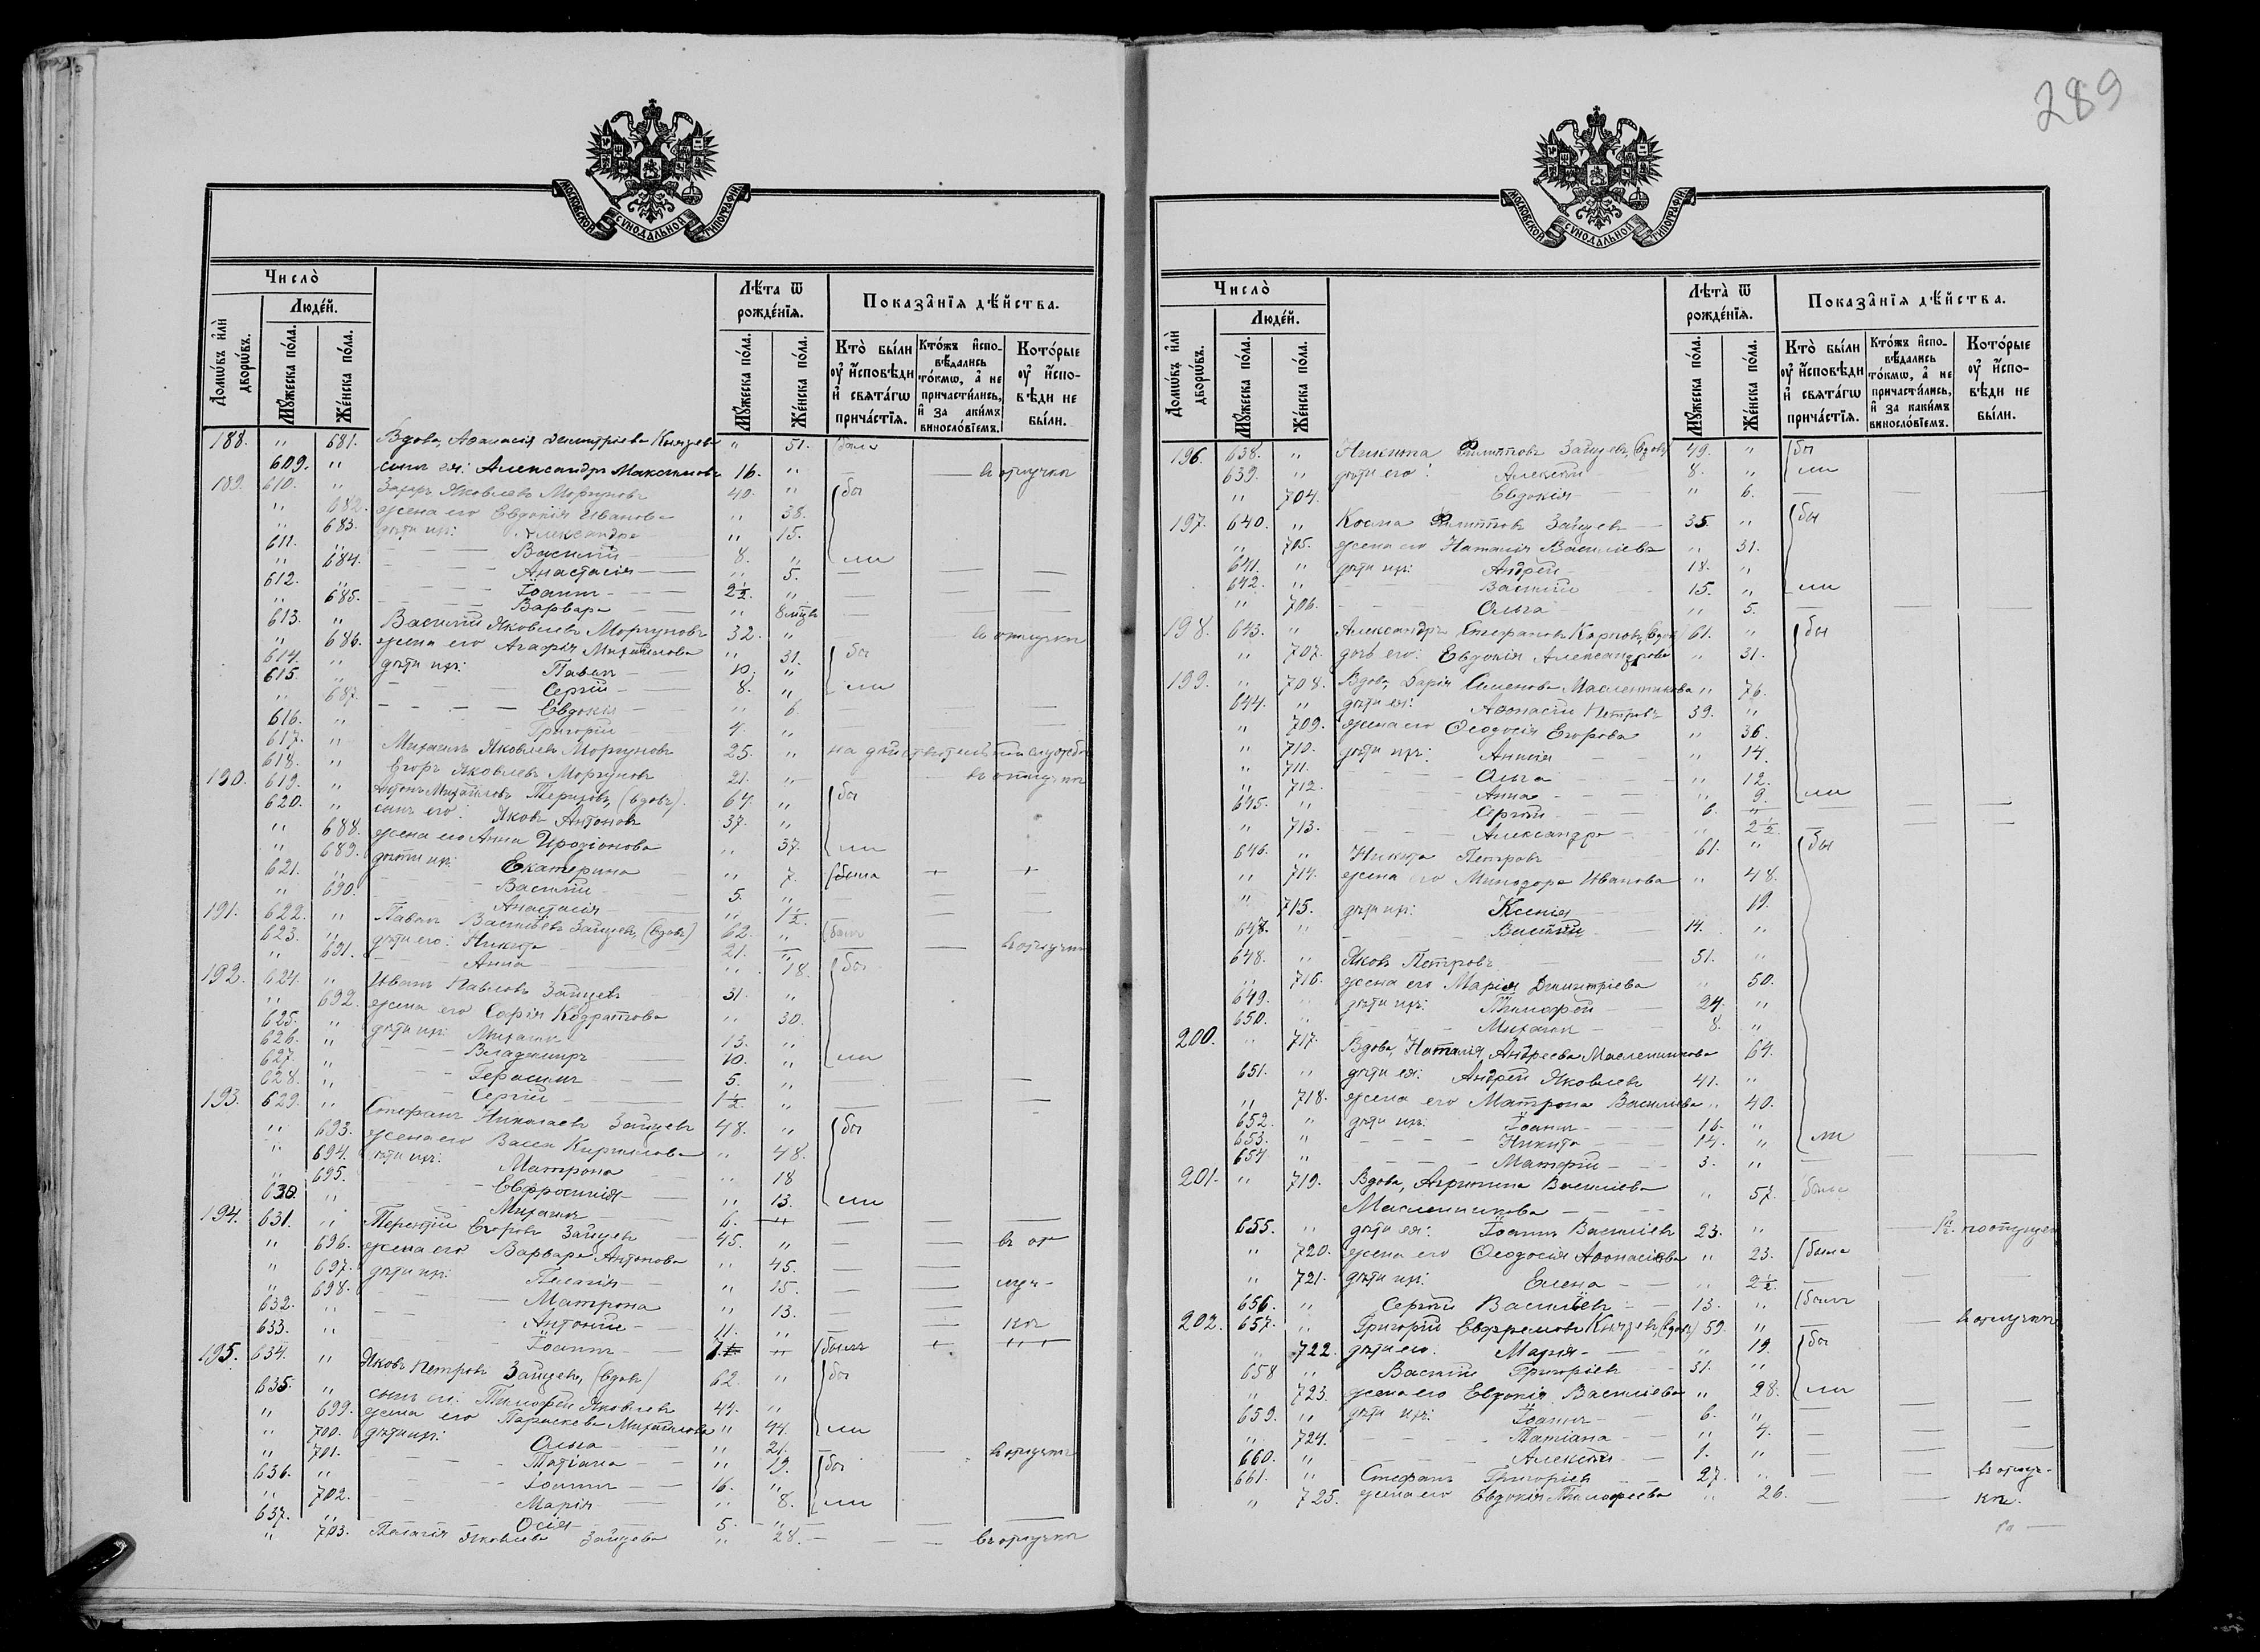 МОСКОВСКОЙ СѴНОДАЛЬНОЙ ТИПОГРАФІИ
Число̀
Людей.
Домѡвъ и҆лѝ дворѡвъ.
Мꙋжеска по́ла.
Же́нска по́ла.
Лѣ́та ѿ рожде́нїѧ.
Мꙋжеска по́ла.
Же́нска по́ла.
Показа̂нїѧ дѣ́йства.
Кто̀ бы́ли ᲂу҆ и҆́споведи и҆ свѧта́гѡ прича́стїѧ.
Кто́жъ и҆спо-вѣ́дались то́кмѡ, а҆ не причасти́лись, и҆ за акимъ винослові́емъ.
Кото́рые ᲂу҆ и҆спо-вѣди не бы́ли.
188. " 681. Вдова, Аѳанасія Димитріева Князева " 51. была
609. " сынъ ея: Александръ Максимовъ 16. " — въ отлучкѣ
189. 610. " Захаръ Яковлевъ Моргуновъ 40. " бы
" 682. жена его Евдокія Иванова " 38.
" 683. дѣти ихъ: Александра " 15.
611. " Василій 8. " ли
" 684. Анастасія " 5. — — —
612. " Іоаннъ 2½. " — — —
" 685. Варвара " 8 мцъ — — —
613. " Василій Яковлевъ Моргуновъ 32. " — въ отлучкѣ
" 686. жена его Агафія Михайлова " 31. бы
614. " дѣти ихъ: Павелъ 10. "
615. " Сергій 8. " ли
" 687. Евдокія " 6 — — —
616. " Григорій 4. " — — —
617. " Михаилъ Яковлевъ Моргуновъ 25. " на дѣйствительной службѣ
618. " Егоръ Яковлевъ Моргуновъ 21. " — въ отлучкѣ
190. 619. " Антонъ Михайловъ (вдовъ). 64. " бы
620. " сынъ его: Яковъ Антоновъ 37. "
" 688. жена его Анна Иродіонова " 37. ли
" 689. дѣти ихъ: Екатерина " 7. была + +
621. " Василій 5. " — — —
" 690. Анастасія " 1½. — — —
191. 622. " Павелъ Васильевъ Зайцевъ, (вдовъ) 62. " былъ
623. " дѣти его: Никита 21. " — — въ отлучкѣ
" 691. Анна " 18. бы
192. 624. " Иванъ Павловъ Зайцевъ 31. "
" 692. жена его Софія Кодратова " 30.
625. " дѣти ихъ: Михаилъ 13. "
626. " Владимиръ 10. " ли
627. " Герасимъ 5. " — —
628. " Сергій 1½. " — — —
193. 629. " Стефанъ Николаевъ Зайцевъ 48. " бы
" 693. жена его Васса Кирилова " 48.
" 694. дѣти ихъ: Матрона " 18
" 695. Евфросинія " 13. ли
630. " Михаилъ 6. " — — —
194. 631. " Терентій Егоровъ Зайцевъ 45. " — — въ от
" 696. жена его Варвара Антонова " 45. — —
" 697. дѣти ихъ: Пелагія " 15. — — луч-
" 698. Матрона " 13. — —
632. " Антоній 11. " — — кѣ
633. " Іоаннъ 7. " былъ +
195. 634. " Яковъ Петровъ Зайцевъ, (вдовъ) 62. " бы
635. " сынъ его: Тимофей Яковлевъ 44. "
" 699. жена его Параскева Михайлова " 44. ли
" 700. дѣти ихъ: Ольга " 21. — — въ отлучкѣ
" 701. Татіана " 19. бы
636. " Іоаннъ 16. "
" 702. Марія " 8. ли
637. " Осія 5. " — — —
" 703. Палагія Яковлева Зайцева " 28. — — въ отлучкѣ
289
МОСКОВСКОЙ СѴНОДАЛЬНОЙ ТИПОГРАФІИ
Число̀
Людей.
Домѡвъ и҆лѝ дворѡвъ.
Мꙋжеска по́ла.
Же́нска по́ла.
Лѣта̀ ѿ рожде́нїѧ.
Мꙋжеска по́ла.
Же́нска по́ла.
Показа̂нїѧ дѣ́йства.
Кто̀ бы́ли ᲂу҆ и҆́споведи и҆ свѧта́гѡ прича́стїѧ.
Кто́жъ и҆спо-вѣ́дались то́кмѡ, а҆ не причасти́лись, и҆ за каки́мъ винослові́емъ.
Кото́рые ᲂу҆ и҆спо-вѣди не бы́ли.
196. 638. " Никита Филиповъ Зайцевъ, (вдовъ) 49. " бы
639. " дѣти его: Алексѣй 8. " ли
" 704. Евдокія " 6. — — —
197. 640. " Косма Филиповъ Зайцевъ 35. " бы
" 705. жена его Наталія Василіева " 31.
641. " дѣти ихъ: Андрей 18. "
642. " Василій 15. " ли
" 706. Ольга " 5. — —
198. 643. " Александръ Стефановъ Карповъ, (вдовъ) 61. " бы
" 707. дочь его: Евдокія Александрова " 31.
199. " 708. Вдова, Дарія Симеонова Масленникова " 76.
644. " дѣти ея: Аѳонасій Петровъ 39. "
" 709. жена его Ѳеодосія Егорова " 36.
" 710. дѣти ихъ: Анисія " 14.
" 711. Ольга " 12.
" 712. Анна " 9. ли
645. " Сергій 6. " — — —
" 713. Александра " 2½. — — —
646. " Никита Петровъ 61. " бы
" 714. жена его Минодора Иванова " 48.
" 715. дѣти ихъ: Ксенія 19.
647. " Василій 14. "
648. " Яковъ Петровъ 51. "
" 716. жена его Марія Димитріева " 50.
649. " дѣти ихъ: Тимофей 24. "
650. " Михаилъ 8. "
200. " 717. Вдова, Наталія Андреева Масленникова 64.
651. " дѣти ея: Андрей Яковлевъ 41. "
" 718. жена его Матрона Василіева " 40.
652. " дѣти ихъ: Іоаннъ 16. "
653. " Никита 14. " ли
654 " Матфій 3. " — —
201. " 719. Вдова, Агрипина Василіева " 57. была
Масленникова
655. " дѣти ея: Іоаннъ Василіевъ 23. " —
" 720. жена его Ѳеодосія Аѳонасіева " 23. была
" 721. дѣти ихъ: Елена " 2½. — — —
656. " Сергій Васильевъ 13. " былъ
202. 657. " Григорій Ефремовъ Князевъ, (вдовъ) 59. " — въ отлучкѣ
" 722. дѣти его: Марія " 19. бы
658 " Василій Григоріевъ 31. "
" 723. жена его Евдокія Василіева " 28. ли
659. " дѣти ихъ: Іоаннъ 6. " — — —
" 724. Татіана " 4. — — —
660. " Алексѣй 1. " — — —
661. " Стефанъ Григоріевъ 27. " — — въ отлуч-
" 725. жена его Евдокія Тимофеева " 26. — — кѣ.